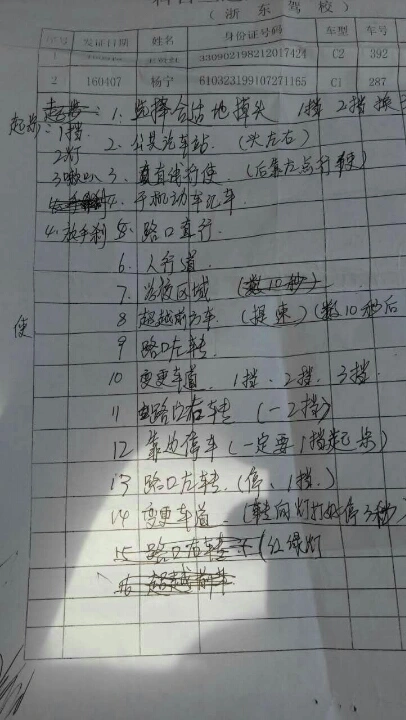 （浙东驾校）
序号 发证日期 姓名 身份证号码 车型 车号
1 330902198212017424 C2 392
2 160407 杨宁 610323199107271165 C1 287
起步: 1. 选择合适地掉头 1挡 2挡 换
1挡 2. 公共汽车站. (头左右)
2灯
3喇叭 3. 直线行使. (后靠左点行使)
4. 于机动车
4. 放手刹 5. 路口直行.
6. 人行道.
7. 学校区域 (数10秒)
8 超越前方车. (提速) (数10秒后
使
9 路口左转
10 变更车道. 1挡. 2挡. 3挡.
11 路口右转 (一2挡)
12 靠边停车 (一定要1挡起步)
13 路口左转. (停、1挡.)
14 变更车道. (转向灯打好停3秒)
15 路口右转 (红绿灯